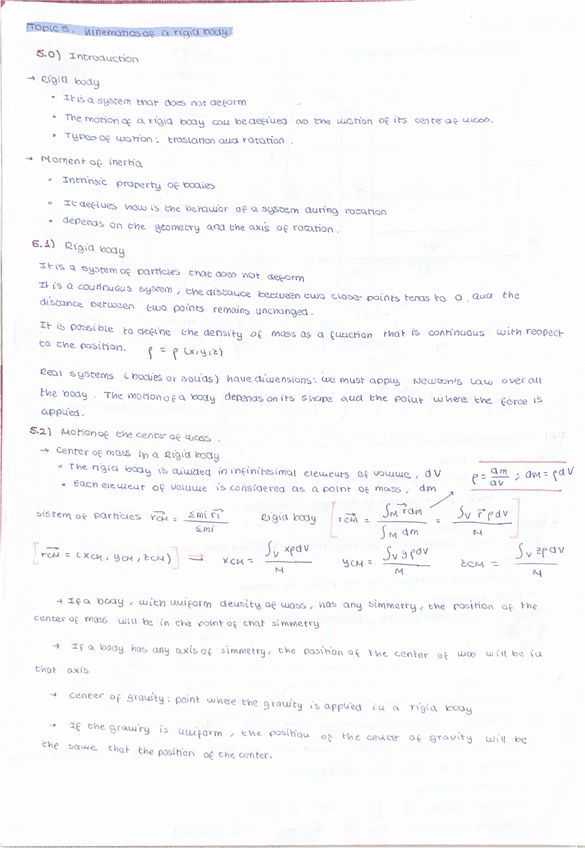 Topic 5. Kinematics of a rigid body.
5.0) Introduction
→ Rigid body
• It is a system that does not deform
• The motion of a rigid body can be defined as the motion of its center of mass.
• Types of motion: traslation and rotation.
→ Moment of inertia
• Intrinsic property of bodies
• It defines how is the behavior of a system during rotation
• depends on the geometry and the axis of rotation.
5.1) Rigid body
It is a system of particles that does not deform
It is a continuous system, the distance between two closer points tends to 0, and the
distance between two points remains unchanged.
It is possible to define the density of mass as a function that is continuous with respect
to the position. ρ = ρ (x,y,z)
Real systems (bodies or solids) have dimensions: we must apply Newton's Law over all
the body. The motion of a body depends on its shape and the point where the force is
applied.
5.2) Motion of the center of mass.
→ Center of mass in a Rigid body
• The rigid body is divided in infinitesimal elements of volume, dV
• Each element of volume is considered as a point of mass, dm
ρ = dm/dV ; dm = ρdV
sistem of particles r⃗CM = Σmi r⃗i / Σmi Rigid body [r⃗CM = ∫M r⃗dm / ∫M dm = ∫V r⃗ρdV / M]
[r⃗CM = (xCM, yCM, zCM)] → xCM = ∫V xρdV / M yCM = ∫V yρdV / M zCM = ∫V zρdV / M
→ If a body, with uniform density of mass, has any simmetry, the position of the
center of mass will be in the point of that simmetry
→ If a body has any axis of simmetry, the position of the center of mass will be in
that axis
→ center of gravity: point where the gravity is applied in a rigid body
→ If the gravity is uniform, the position of the center of gravity will be
the same that the position of the center.